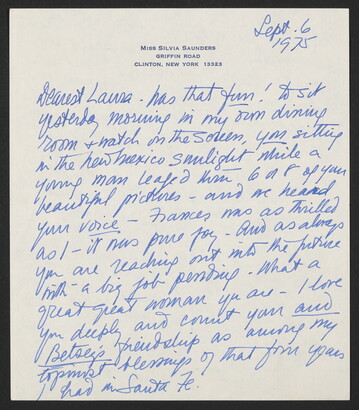 Sept. 6
1975
MISS SILVIA SAUNDERS
GRIFFIN ROAD
CLINTON, NEW YORK 13323
Dearest Laura - was that fun! to sit
yesterday morning in my own dining
room & watch on the screen, you sitting
in the New Mexico sunlight while a
young man leafed thru 6 or 8 of your
beautiful pictures - and we heard
your voice - Frances was as thrilled
as I - it was pure joy - And as always
you are reaching out into the future
with - a big job pending. What a
great great woman you are - I love
you deeply and count your and
Betsey's friendship as among my
topmost blessings of that four years
I had in Santa Fe!